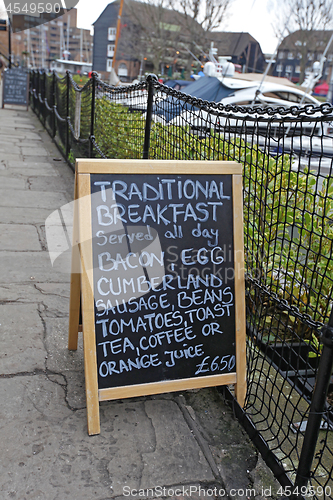 45459095
TRADITIONAL
BREAKFAST
Served all day
BACON EGG
CUMBERLAND
SAUSAGE, BEANS
TOMATOES, TOAST
TEA, COFFEE OR
ORANGE JUICE
£6.50